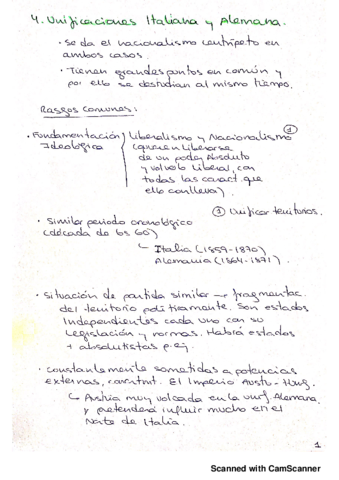 4. Unificaciones Italiana y Alemana.
• se da el nacionalismo centrípeto en
ambos casos.
• Tienen grandes puntos en común y
por ello se estudian al mismo tiempo.
Rasgos comunes:
• Fundamentación Ideológica
Liberalismo y Nacionalismo ①
(quieren liberarse
de un poder Absoluto
y volverlo liberal, con
todas las caract. que
ello conlleva)
① Unificar territorios.
• Similar periodo cronológico
(década de los 60)
Italia (1859-1870)
Alemania (1864-1871).
• Situación de partida similar → fragmentac.
del territorio políticamente. Son estados
Independientes cada uno con su
Legislación y normas. Habrá estados
+ absolutistas p.ej.
• constantemente sometidas a potencias
externas, El Imperio Austr-Hung.
Austria muy volcada en la unif. Alemana,
y pretenderá influir mucho en el
Norte de Italia.
1
Scanned with CamScanner